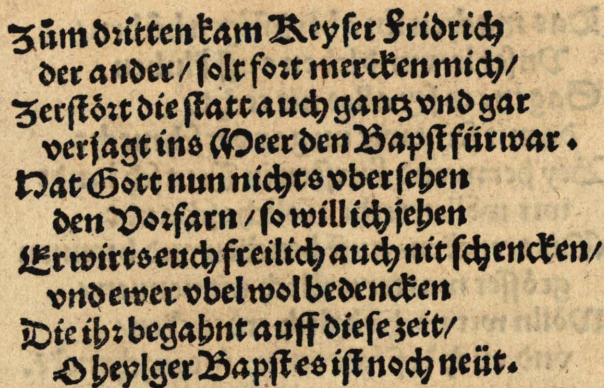 Zům dritten kam Keyser Fridrich
der ander / solt fort mercken mich /
Zerstört die statt auch gantz vnd gar
verjagt ins Meer den Bapst fürwar.
Hat Gott nun nichts vbersehen
den Vorfarn / so will ich jehen
Er wirts euch freilich auch nit schencken /
vnd ewer vbel wol bedencken
Die ihr begahnt auff diese zeit /
O heylger Bapst es ist noch neüt.